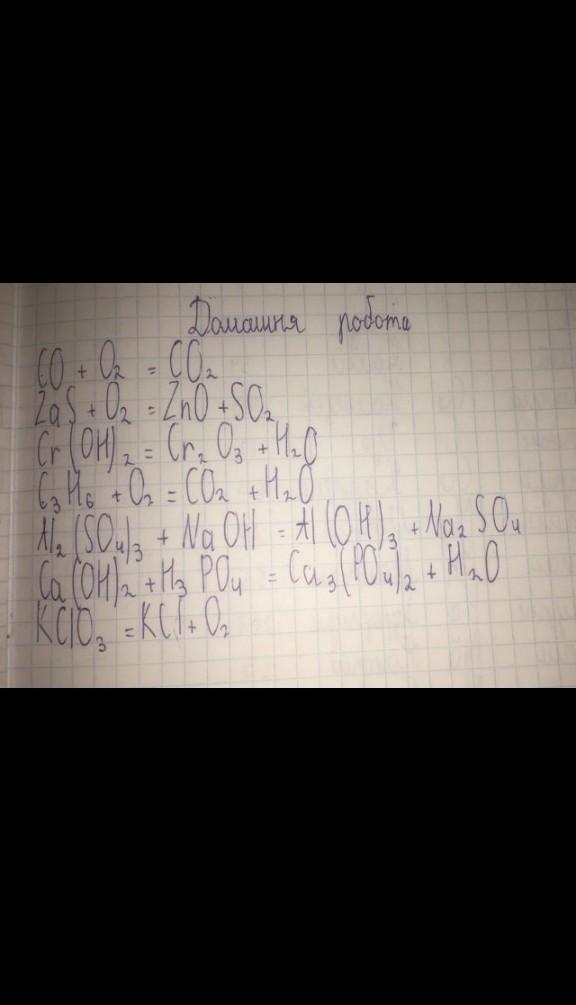 Домашня робота
CO + O₂ = CO₂
ZaS + O₂ = ZnO + SO₂
Cr(OH)₂ = Cr₂O₃ + H₂O
C₃H₆ + O₂ = CO₂ + H₂O
Al₂(SO₄)₃ + NaOH = Al(OH)₃ + Na₂SO₄
Ca(OH)₂ + H₃PO₄ = Ca₃(PO₄)₂ + H₂O
KClO₃ = KCl + O₂